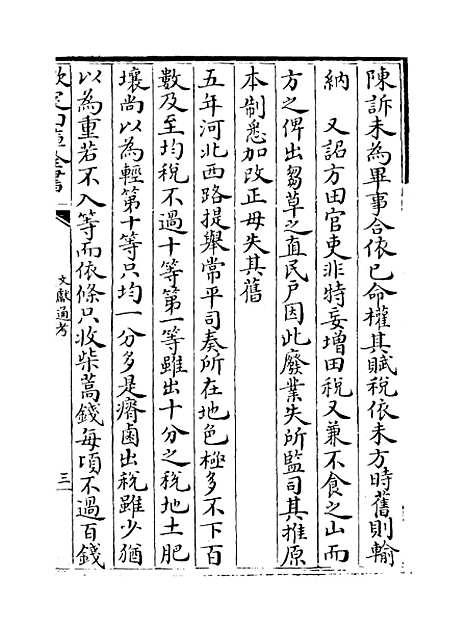 陳訴未為畢事合依已命權其賦稅依未方時舊則輸
納　又詔方田官吏非特妄增田稅又兼不食之山而
方之俾出芻草之直民戶因此廢業失所監司其推原
本制悉加改正毋失其舊
五年河北西路提舉常平司奏所在地色極多不下百
數及至均稅不過十等第一等雖出十分之稅地土肥
壤尚以為輕第十等只均一分多是瘠鹵出稅雖少猶
以為重若不入等而依條只收柴蒿錢每頃不過百錢
欽定四庫全書
文獻通考
三